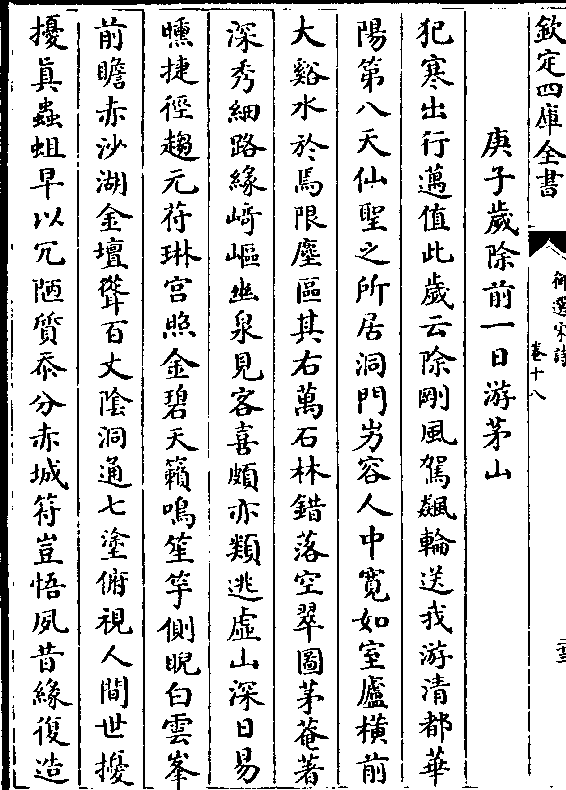 欽定四庫全書
御選宋詩
卷十八
庚子歲除前一日游茅山
犯寒出行邁值此歲云除剛風駕飆輪送我游清都華
陽第八天仙聖之所居洞門劣容人中寛如室廬橫前
大谿水於焉限塵區其右萬石林錯落空翠圖茅菴著
深秀細路緣﨑嶇幽泉見客喜頗亦類逃虛山深日易
曛捷徑趨元符琳宫照金碧天籟鳴笙竽側睨白雲峯
前瞻赤沙湖金壇聳百丈陰洞通七塗俯視人間世擾
擾真蟲蛆早以冗陋質忝分赤城符豈悟夙昔緣復造